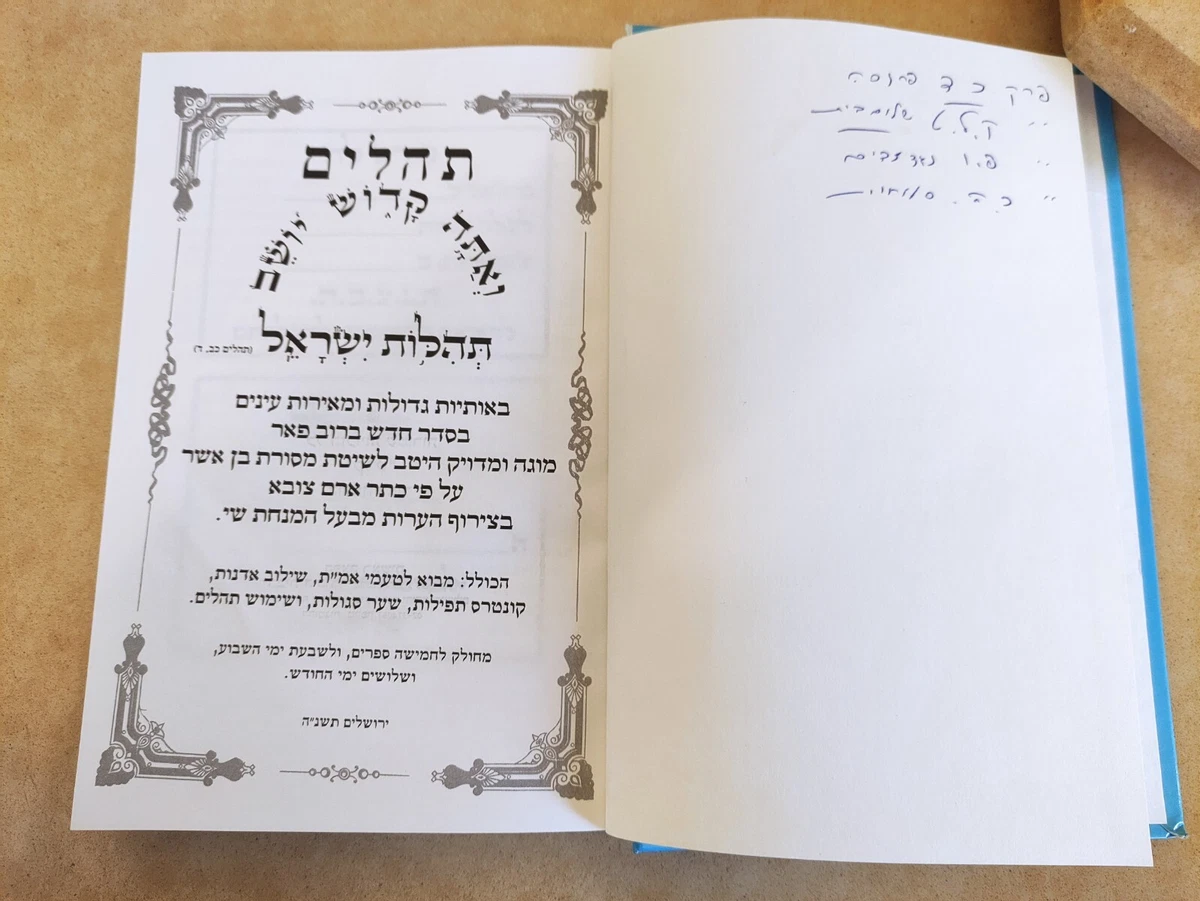 פרק כד פרוסה
״ ק.ל.ט שלום בית
״ פ.ו
״ כ.ב.
תהלים
וְאַתָּה קָדוֹשׁ יוֹשֵׁב
תְּהִלּוֹת יִשְׂרָאֵל (תהלים כב, ד)
באותיות גדולות ומאירות עינים
בסדר חדש ברוב פאר
מוגה ומדויק היטב לשיטת מסורת בן אשר
על פי כתר ארם צובא
בצירוף הערות מבעל המנחת שי.
הכולל: מבוא לטעמי אמ״ת, שילוב אדנות,
קונטרס תפילות, שער סגולות, ושימוש תהלים.
מחולק לחמישה ספרים, ולשבעת ימי השבוע,
ושלושים ימי החודש.
ירושלים תשנ״ה